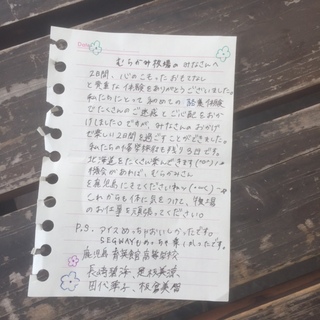 むらかみ牧場の みなさんへ
2日間、心のこもったおもてなし
と貴重な体験をありがとうございました。
私たちにとって初めての 酪農体験
でたくさんのご迷惑とご心配をおか
けしました。ですが、みなさんのおかげ
で楽しい2日間を過ごすことができました。
私たちの修学旅行も残り3日です。
北海道をたくさん楽しんできます
機会があれば、むらかみさん
も鹿児島にきてくださいね
これからも体に気を付けて、牧場
のお仕事を頑張ってください。
P.S. アイスめっちゃおいしかったです。
SEGWAYもめっちゃ楽しかったです。
鹿児島 育英館高等学校